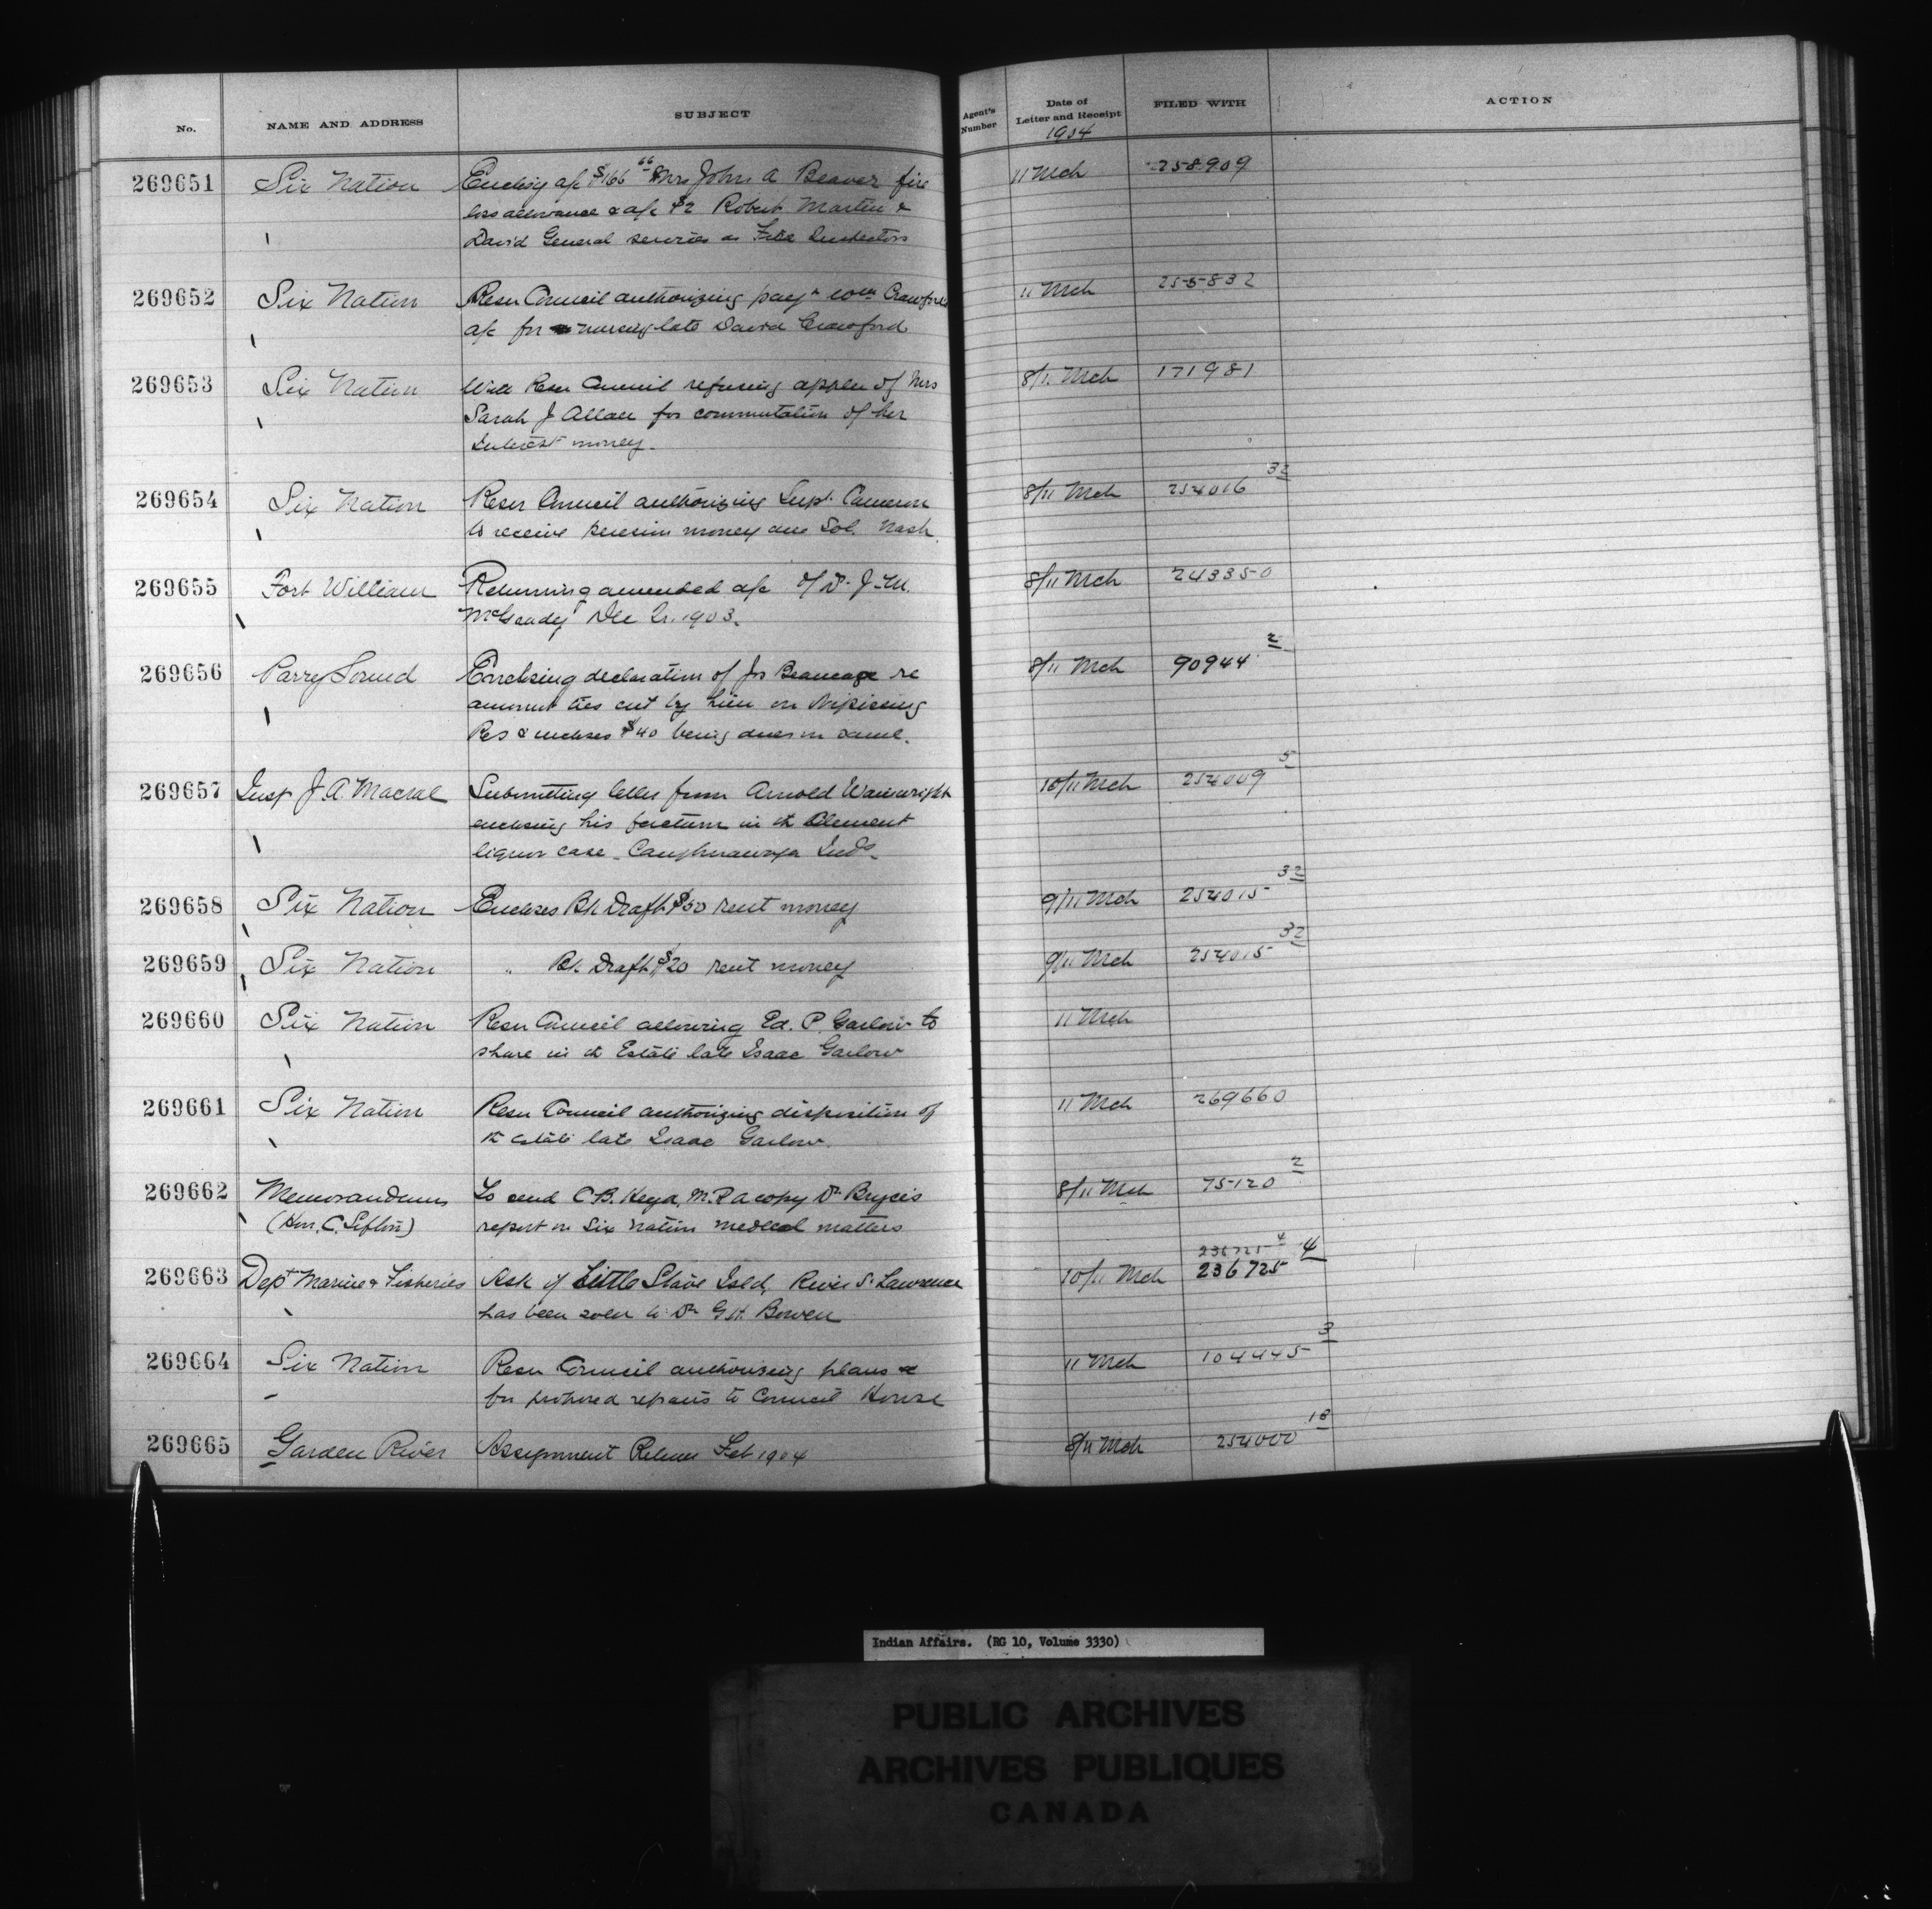 No. NAME AND ADDRESS SUBJECT Agent's Number Date of Letter and Receipt FILED WITH ACTION
1904
269651 Six Nation Enclosg a/c $166 66 Mrs John A Beaver fire 11 Mch 258909
loss allowance & a/c $2 Robert Martin &
David General services as Fire Inspectors
269652 Six Nation Resn Council authorizing payt Wm Crawford 11 Mch 255832
a/c for nursing late David Crawford
269653 Six Nation With Resn Council refusing appln of Mrs 8/11 Mch 171981
Sarah J Allan for commutation of her
Interest money.
269654 Six Nation Resn Council authorizing Supt. Cameron 8/11 Mch 254016 32
to receive pension money due Sol. Nash.
269655 Fort William Returning amended a/c of Dr J. M. 8/11 Mch 243350
McGrady Dec Qr. 1903.
269656 Parry Sound Enclosing declaration of Jos Beaucage re 8/11 Mch 90944 2
amount ties cut by him on Nipissing
Res & encloses $40 being dues on same.
269657 Insp J. A. Macrae Submitting letter from Arnold Wainwright 10/11 Mch 254009 5
enclosing his factum in the Clement
liquor case - Caughnawaga Inds.
269658 Six Nation Encloses Bk Draft $50 rent money 9/11 Mch 254015 32
269659 Six Nation " Bk Draft $20 rent money 9/11 Mch 254015 32
269660 Six Nation Resn Council allowing Ed. P. Garlow to 11 Mch
share in the Estate late Isaac Garlow
269661 Six Nation Resn Council authorizing disposition of 11 Mch 269660
the estate late Isaac Garlow.
269662 Memorandum To send C. B. Heyd, M.P. a copy Dr Bryce's 8/11 Mch 75120 2
(Hon. C. Sifton) report on Six Nation medical matters
236725 4 4
269663 Dept Marine & Fisheries Ask if Little Slave Isld, River St Lawrence 10/11 Mch 236725
has been sold to Dr G. H. Bowen
269664 Six Nation Resn Council authorizing plans &c 11 Mch 104445 3
for proposed repairs to Council House
269665 Garden River Assignment Return Feb 1904 8/11 Mch 254000 18
Indian Affairs. (RG 10, Volume 3330)
PUBLIC ARCHIVES
ARCHIVES PUBLIQUES
CANADA